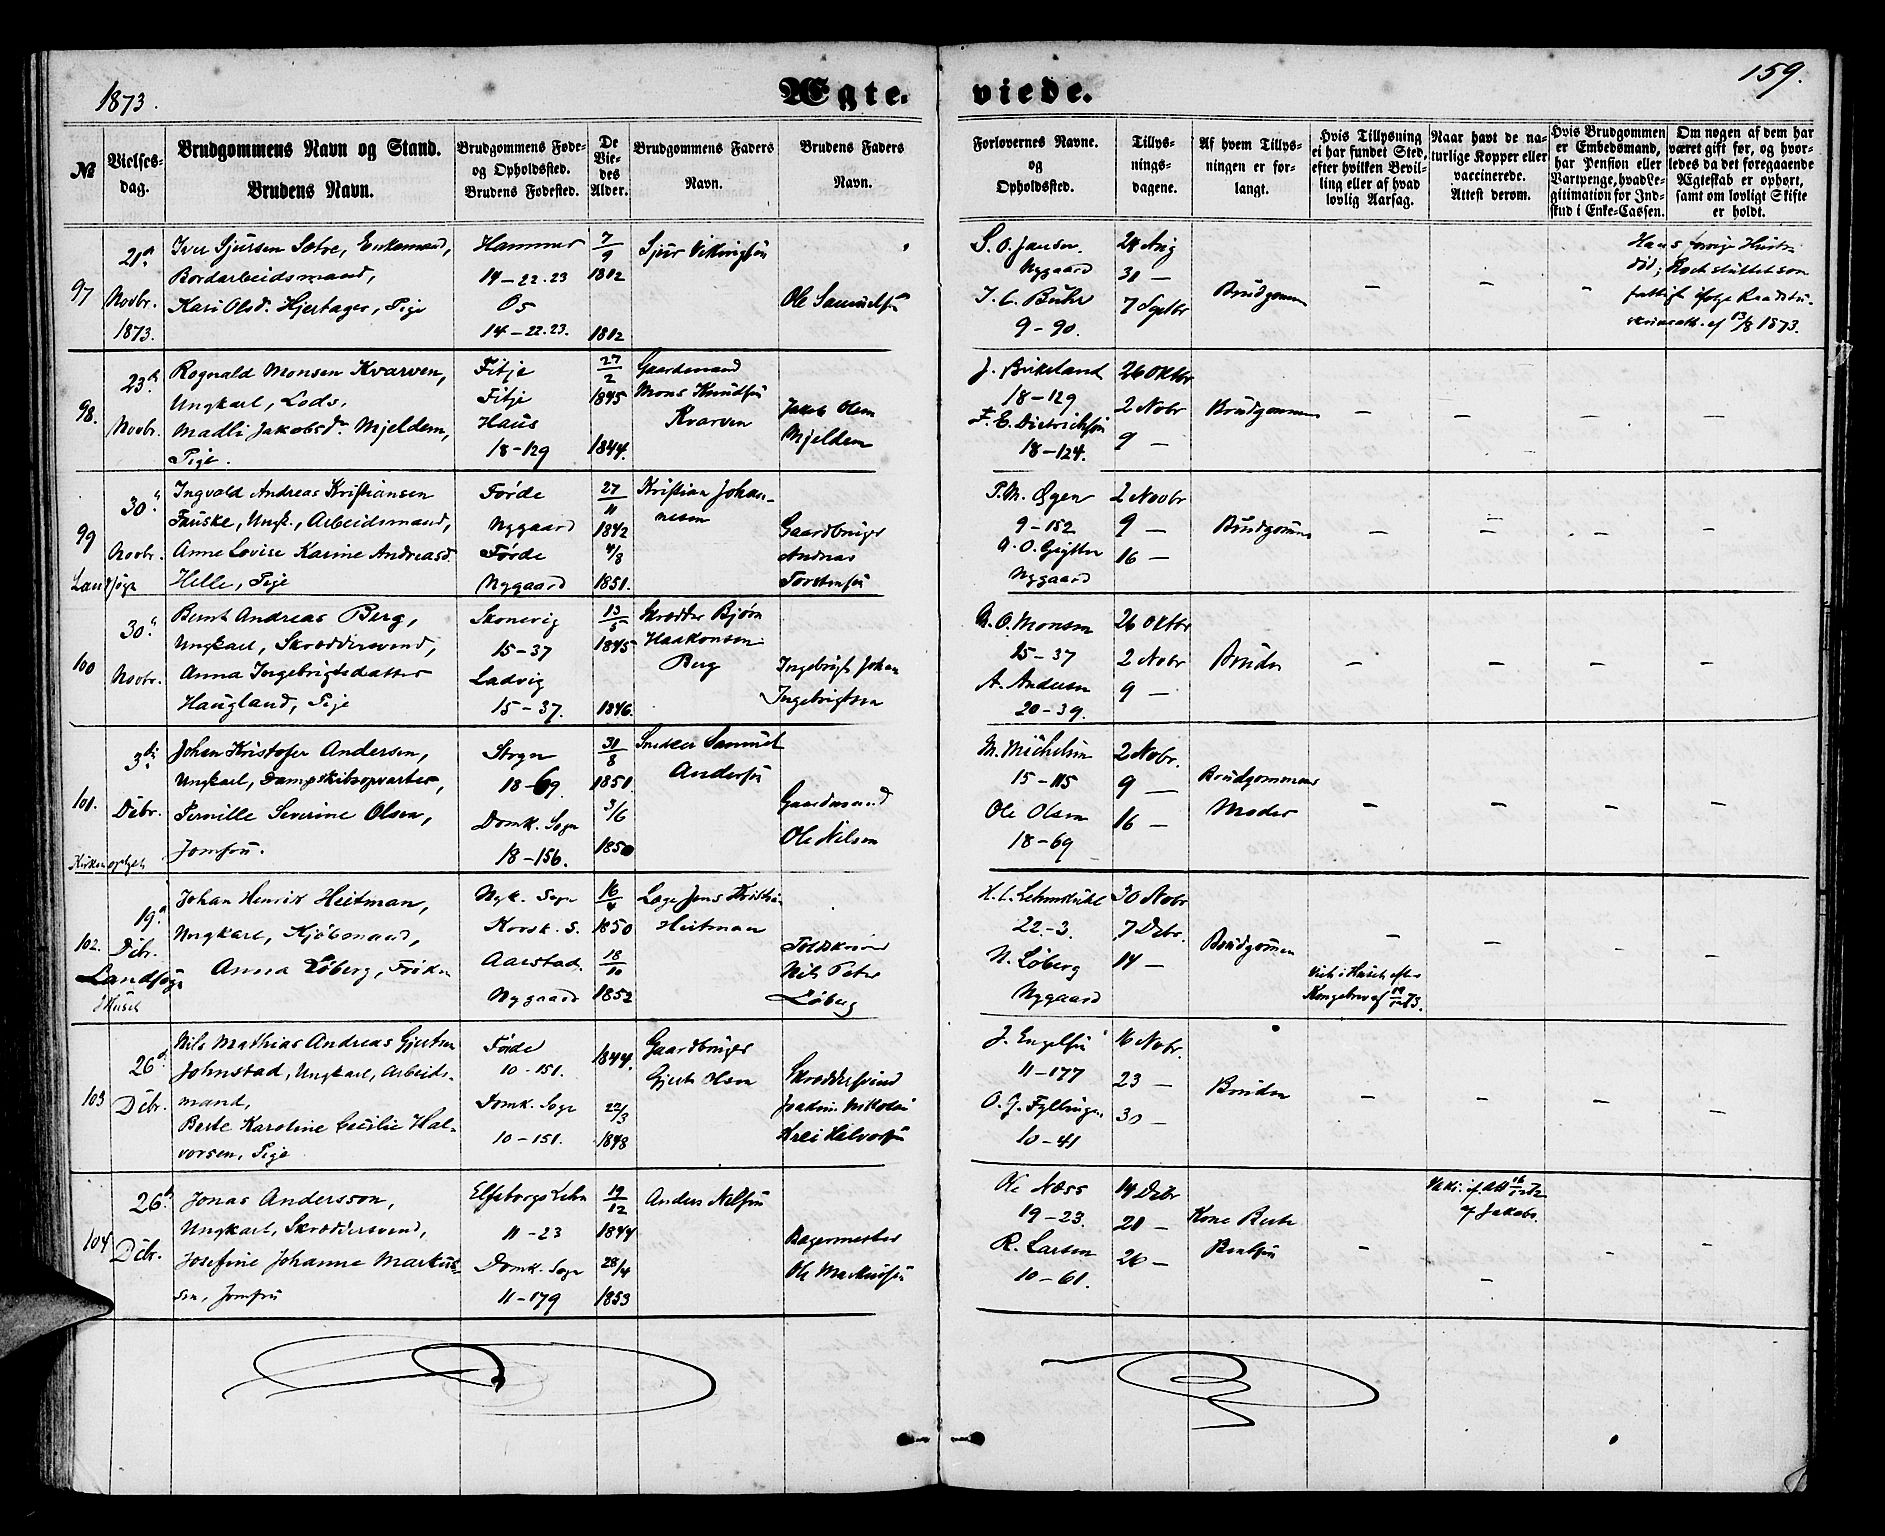 1873.
Ægte-
viede.
159.
№
Vielses-
dag.
Brudgommens Navn og Stand.
Brudens Navn.
Brudgommens Føde-
og Opholdssted.
Brudens Fødested.
De
Vie-
des
Alder.
Brudgommens Faders
Navn.
Brudens Faders
Navn.
Forlovernes Navne.
og
Opholdssted.
Tillys-
nings-
dagene.
Af hvem Tillys-
ningen er for-
langt.
Hvis Tillysning
ei har fundet Sted,
efter hvilken Bevil-
ling eller af hvad
lovlig Aarsag.
Naar havt de na-
turlige Kopper eller
vaccinerede.
Attest derom.
Hvis Brudgommen
er Embedsmand,
har Pension eller
Vartpenge, hvad Le-
gitimation for Ind-
skud i Enke-Cassen.
Om nogen af dem har
været gift før, og hvor-
ledes da det foregaaende
Ægteskab er ophørt,
samt om lovligt Skifte
er holdt.
97
21d
Novbr.
1873.
Iver Sjursen Sætre, Enkemand,
Bordarbeidsmand,
Kari Olsd. Hjertager, Pige
Hammer
14-22.23
Os
14-22.23.
7/9
1812
1812
Sjur Vikingsøn
Ole Samuelsøn
S. O. Jansen
Nygaard
J. C. Buhr
9-90.
24 Aug
31 —
7 Septbr
Brudgommen
Hans forrige Hustru
død;
13/8 1873.
98.
23d
Novbr.
Rognald Monsen Kvarven,
Ungkarl, Lods,
Madli Jakobsdr Mjeldem,
Pige.
Fitje
Fitje
Haus
18-129
27/2
1845
1844.
Gaardmand
Mons Knudsøn
Kvarven
Jakob Olsen
Mjeldem
J. Birkeland
18-129
F. E. Dietrichsøn
18-124.
26 Oktbr
2 Nobr
9 —
Brudgommen
99
30d
Novbr.
Landsogn
Ingvald Andreas Kristiansen
Fauske, Ungk., Arbeidsmand,
Anne Lovise Karine Andreasd.
Helle, Pige
Førde
Nygaard
Førde
Nygaard
27/11
1842
4/8
1851.
Kristian Johan-
nesen
Gaardbruger
Andreas
Torstensøn
P. M. Øgen
9-152
Nygaard
2 Novbr
9 —
16 —
Brudgommen
100
30d
Novbr.
Bernt Andreas Berg,
Ungkarl, Skræddersvend,
Anna Ingebrigtsdatter
Haugland, Pige
Skonevig
15-37
Ladvig
15-37.
13/5
1845
1846.
Skrædder Bjørn
Haakonsen
Berg
Ingebrigt Johan
Ingebrigtsen
A. O. Monsen
15-37
A. Andersen
20-39.
26 Oktbr
2 Nobr
9 —
Bruden
101.
3die
Debr.
Johan Kristofer Andersen,
Ungkarl, Dampskibsopvarter,
Pernille Severine Olsen,
Jomfru.
18-69.
Domk. Sogn
18-156.
31/8
1851.
3/6
1850
Snedker Samuel
Andersøn
Gaardmand
Ole Nilsen
M. Michelsen
15-115
Ole Olsen
18-69
2 Nobr.
9 —
16 —
Brudgommens
Moder
102.
19d
Debr.
Landsogn
i Huset
Johan Henrik Heitman,
Ungkarl, Kjøbmand,
Anna Løberg, Frøken
Nyk. Sogn
Korsk. S.
Aarstad.
Nygaard
16/4
1850
18/10
1852
Læge Jens Kristian
Heitman
Toldskriver
Nils Peter
Løberg
H. C. Lehmkuhl
22-3.
N. Løberg
Nygaard
30 Nobr
7 Debr.
14 —
Brudgommen
Viet i Huset efter
Kongebrev af 19/12 73.
103
26d
Debr.
Nils Mathias Andreas Gjertsen
Johnstad, Ungkarl, Arbeids-
mand,
Berte Karoline Cecilie Hal-
vorsen, Pige
Førde
10-151.
Domk. Sogn
10-151.
1844.
22/3
1848
Gaardbruger
Gjert Olsen
Skræddersvend
Joachim Nikolai
Krei Halvorsøn
J. Engelsøn
11-177
O. J. Fyllingen
10-41
16 Nobr.
23 —
30 —
Bruden
104
26d
Debr.
Jonas Andersson,
Ungkarl, Skræddersvend,
Josefine Johanne Markus-
sen, Jomfru
Elfsborgs Lehn
11-23
Domk. Sogn
11-179
19/12
1844
28/4
1853
Anders Nilssøn
Bagermester
Ole Markussøn
Ole Næss
19-23.
R. Larsen
10-61.
14 Debr
21 —
26 —
Kone Berte
Bentsøn
af Jakobs.